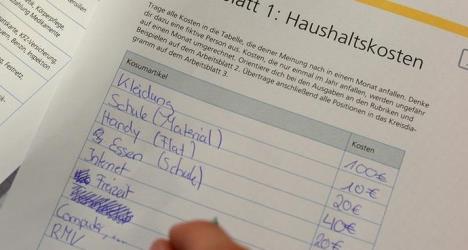 Körperpflege
Medikamente
KFZ-Versicherung,
Benzin, Inspektion
Festnetz
latt 1: Haushaltskosten
Trage alle Kosten in die Tabelle, die deiner Meinung nach in einem Monat anfallen. Denke
dir dazu eine fiktive Person aus. Kosten, die nur einmal im Jahr anfallen, werden ungefähr
auf einen Monat umgerechnet. Orientiere dich bei den Ausgaben an den Rubriken und
Beispielen auf dem Arbeitsblatt 2. Übertrage anschließend alle Positionen in das Kreisdia-
gramm auf dem Arbeitsblatt 3.
Kosumartikel Kosten
Kleidung 100€
Schule (Material) 10€
Handy (Flat) 20€
Essen (Schule) 40€
Internet 20€
Freizeit
Computer, ...
RMV